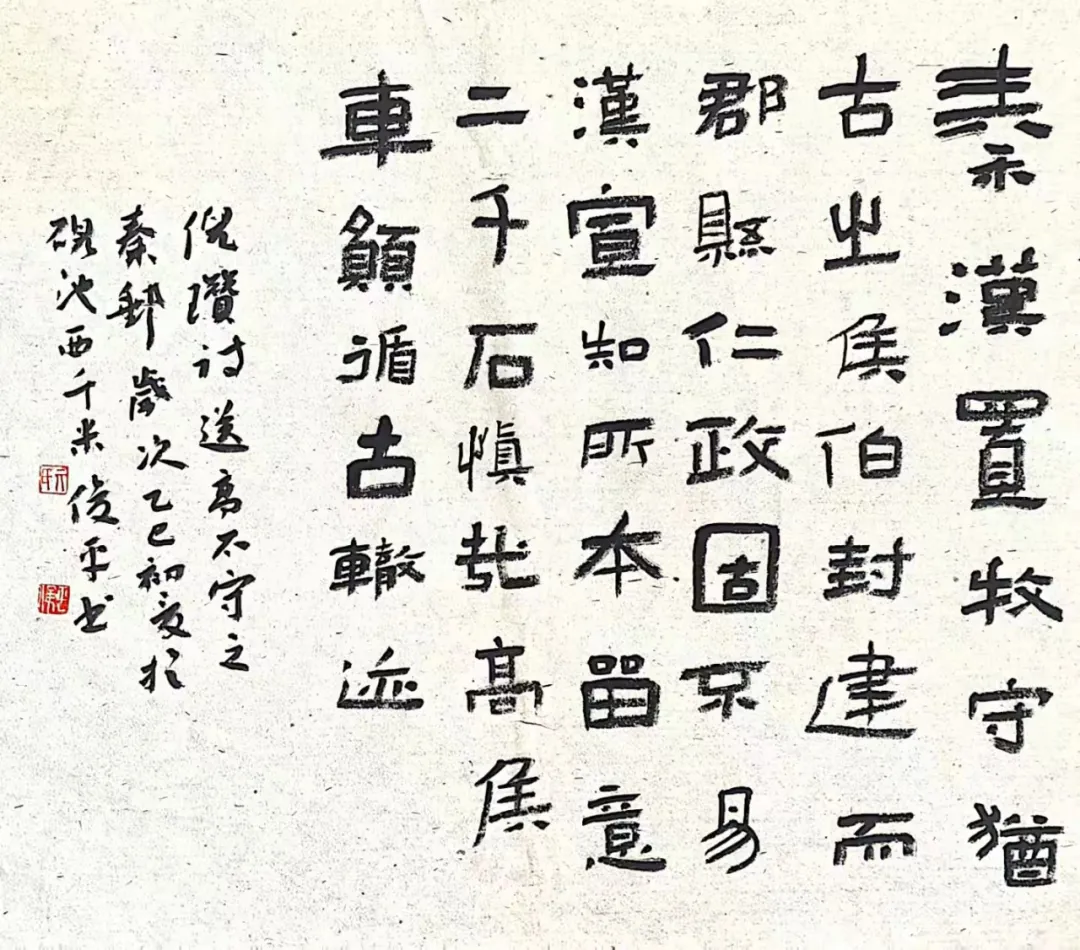 秦漢置牧守猶
古之侯伯封建而
郡縣仁政固不易
漢宣知所本留意
二千石慎哉高侯
車願循古轍迹
倪瓚詩送高太守之
秦郵歲次乙巳初夏於
硯池西千米俊平書